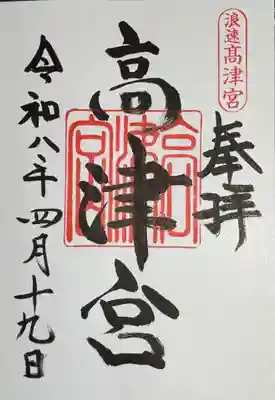 浪速高津宮
奉拝
高津宮
高津宮
令和八年四月十九日